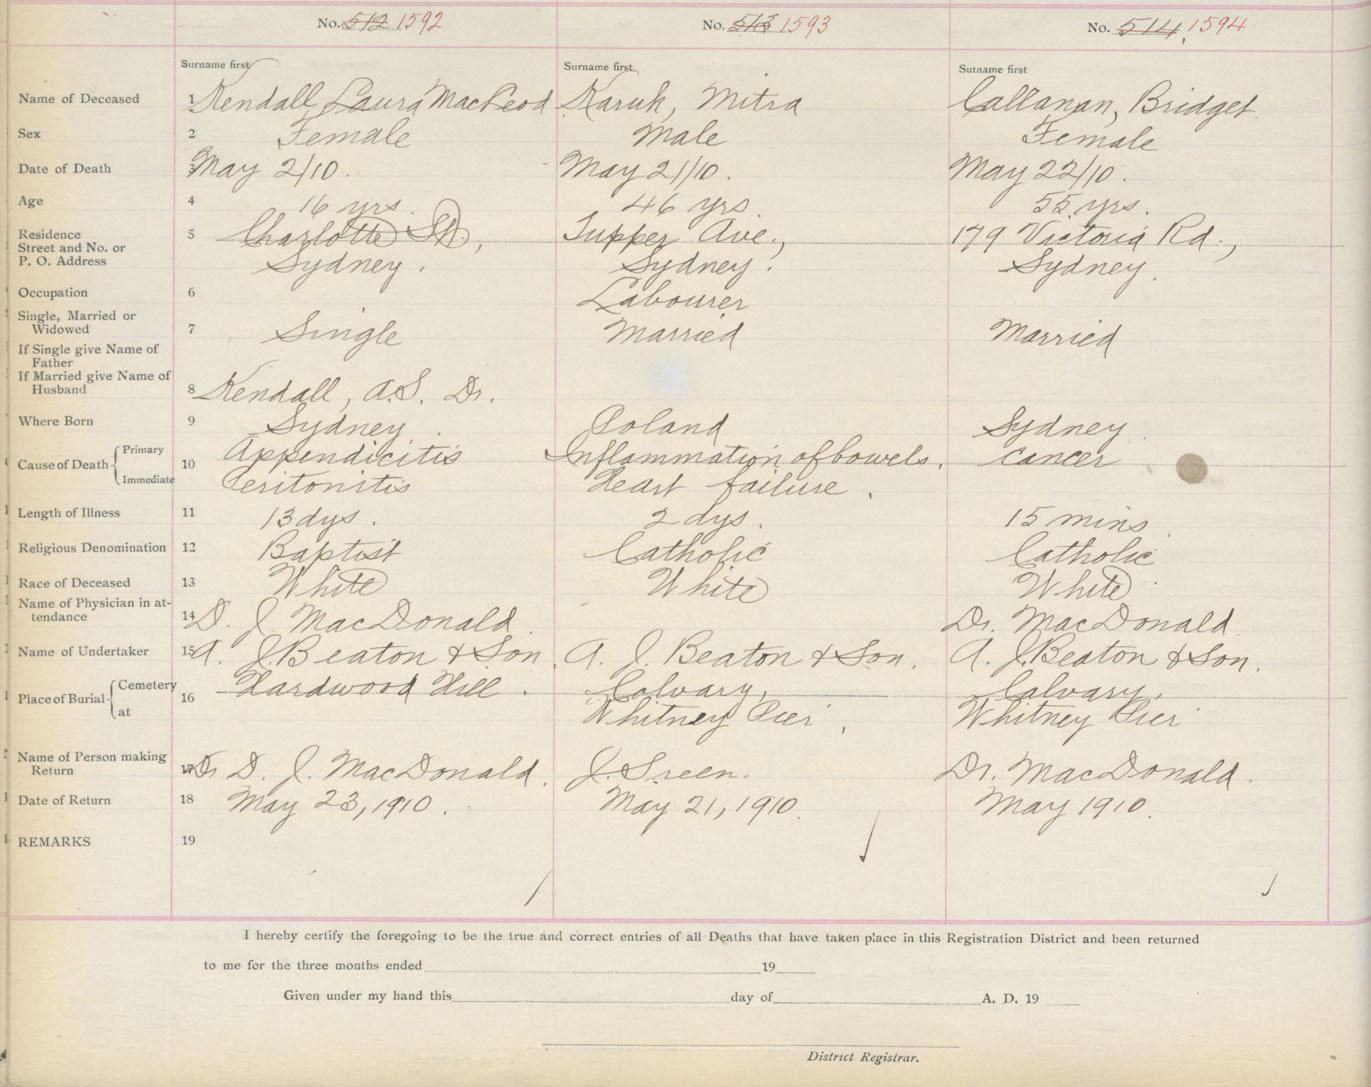 No. 512 1592 No. 513 1593 No. 514 1594
Surname first Surname first Surname first
Name of Deceased 1 Kendall, Laura MacLeod Karuk, Mitra Callanan, Bridget
Sex 2 Female Male Female
Date of Death 3 May 2/10. May 21/10. May 22/10.
Age 4 16 yrs. 46 yrs 55 yrs.
Residence 5 Charlotte St., Tupper Ave., 179 Victoria Rd.,
Street and No. or
P. O. Address Sydney. Sydney. Sydney.
Occupation 6 Labourer
Single, Married or
Widowed 7 Single Married Married
If Single give Name of
Father
If Married give Name of
Husband 8 Kendall, A.S. Dr.
Where Born 9 Sydney. Poland Sydney
Cause of Death Primary 10 Appendicitis Inflammation of bowels. Cancer
Immediate Peritonitis Heart failure.
Length of Illness 11 13 dys. 2 dys. 15 mins
Religious Denomination 12 Baptist Catholic Catholic
Race of Deceased 13 White White White
Name of Physician in at-
tendance 14 D. J. MacDonald Dr. MacDonald
Name of Undertaker 15 A. J. Beaton & Son. A. J. Beaton & Son. A. J. Beaton & Son.
Place of Burial Cemetery 16 Hardwood Hill. Calvary, Calvary,
at Whitney Pier, Whitney Pier
Name of Person making
Return 17 Dr D. J. MacDonald. J. Dr. MacDonald.
Date of Return 18 May 23, 1910. May 21, 1910. May 1910.
REMARKS 19
I hereby certify the foregoing to be the true and correct entries of all Deaths that have taken place in this Registration District and been returned
to me for the three months ended 19
Given under my hand this day of A. D. 19
District Registrar.